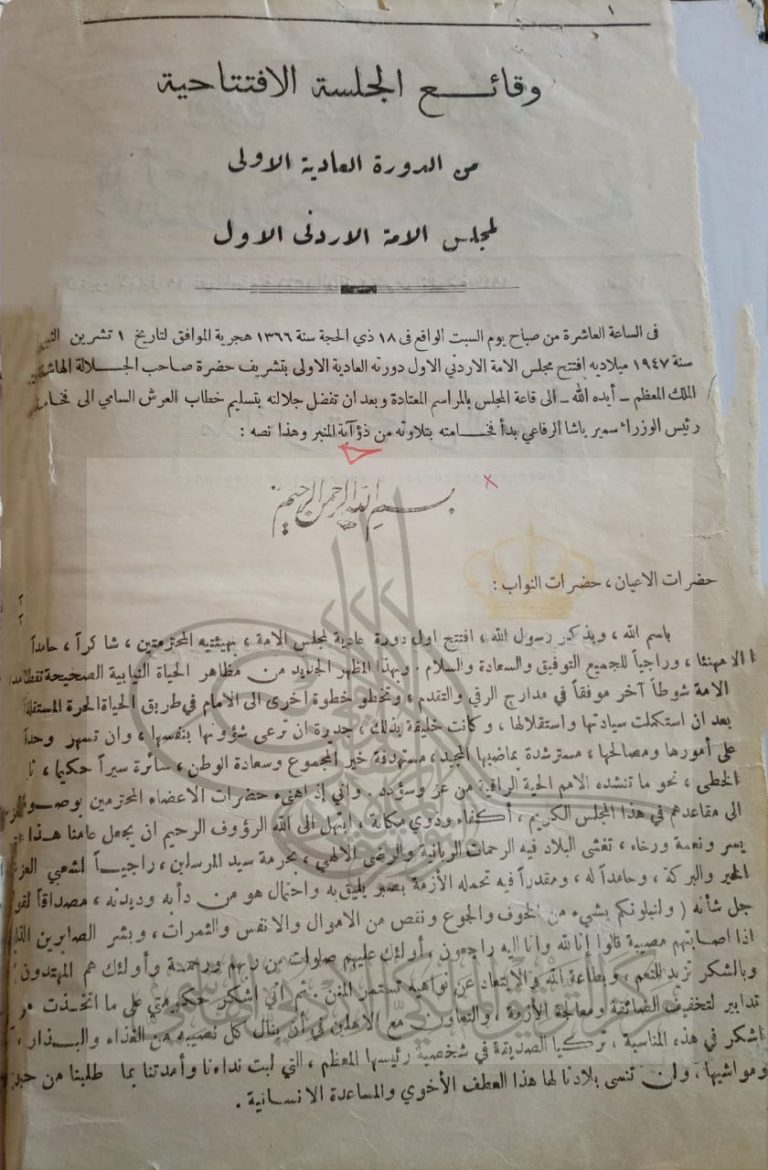 ١
وقائع الجلسة الافتتاحية
من الدورة العادية الاولى
لمجلس الامة الاردنى الاول
فى الساعة العاشرة من صباح يوم السبت الواقع فى ١٨ ذي الحجة سنة ١٣٦٦ هجرية الموافق لتاريخ ١ تشرين
سنة ١٩٤٧ ميلاديه افتتح مجلس الامة الاردني الاول دورته العادية الاولى بتشريف حضرة صاحب الجلالة
الملك المعظم – أيده الله – الى قاعة المجلس بالمراسم المعتادة وبعد ان تفضل جلالته بتسليم خطاب العرش السامي الى
رئيس الوزراء سمير باشا الرفاعي بدأ فخامته بتلاوته من ذؤآبة المنبر وهذا نصه :
بسم الله الرحمن الرحيم
حضرات الاعيان ، حضرات النواب :
باسم الله ، وبذكر رسول الله ، افتتح اول دورة عادية لمجلس الامة ، بهيئتيه المحترمتين ، شاكراً ، حامداً
مهنئا ، وراجياً للجميع التوفيق والسعادة والسلام . وبهذا المظهر الجديد من مظاهر الحياة النيابية الصحيحة تقطع
الامة شوطاً آخر موفقاً في مدارج الرقي والتقدم ، وتخطو خطوة اخرى الى الامام في طريق الحياة الحرة المستقلة
بعد ان استكملت سيادتها واستقلالها ، وكانت خليقة بذلك ، جديرة ان ترعى شؤونها بنفسها ، وان تسهر وحدها
على أمورها ومصالحها ، مسترشدة بماضيها المجيد ، مستهدفة خير المجموع وسعادة الوطن ، سائرة سيراً حكيما ،
الخطى ، نحو ما تنشده الامم الحية الراقية من عز وسؤدد . واني إذ اهنىء حضرات الاعضاء المحترمين
الى مقاعدهم في هذا المجلس الكريم ، أكفاء وذوي مكانة ، ابتهل الى الله الرؤوف الرحيم ان يجعل عامنا هذا
يسر ونعمة ورخاء ، تغشى البلاد فيه الرحمات الربانية والرضى الالهي ، بحرمة سيد المرسلين ، راجياً لشعبي
الخير والبركة ، وحامداً له ، ومقدراً فيه تحمله الأزمة بصبر يليق به واحتمال هو من دأبه وديدنه ، مصداقاً
جل شأنه ( ولنبلونكم بشيء من الخوف والجوع ونقص من الاموال والانفس والثمرات ، وبشر الصابرين الذين
اذا اصابتهم مصيبة قالوا إنا لله وانا اليه راجعون ، أولئك عليهم صلوات من ربهم ورحمة وأولئك هم المهتدون
وبالشكر تزيد النعم ، وبطاعة الله والابتعاد عن نواهيه تستمر المنن . ثم اني اشكر حكومتي على ما اتخذت من
تدابير لتخفيف الضائقة ومعالجة الأزمة ، والتعاون مع الاهلين في أن ينال كل نصيبه من الغذاء والبذار ،
اشكر في هذه المناسبة ، تركيا الصديقة في شخصية رئيسها المعظم ، التي لبت نداءنا وأمدتنا بما طلبنا من
ومواشيها ، ولن تنسى بلادنا لها هذا العطف الأخوي والمساعدة الانسانية .
مركز التوثيق الملكي الأردني الهاشمي